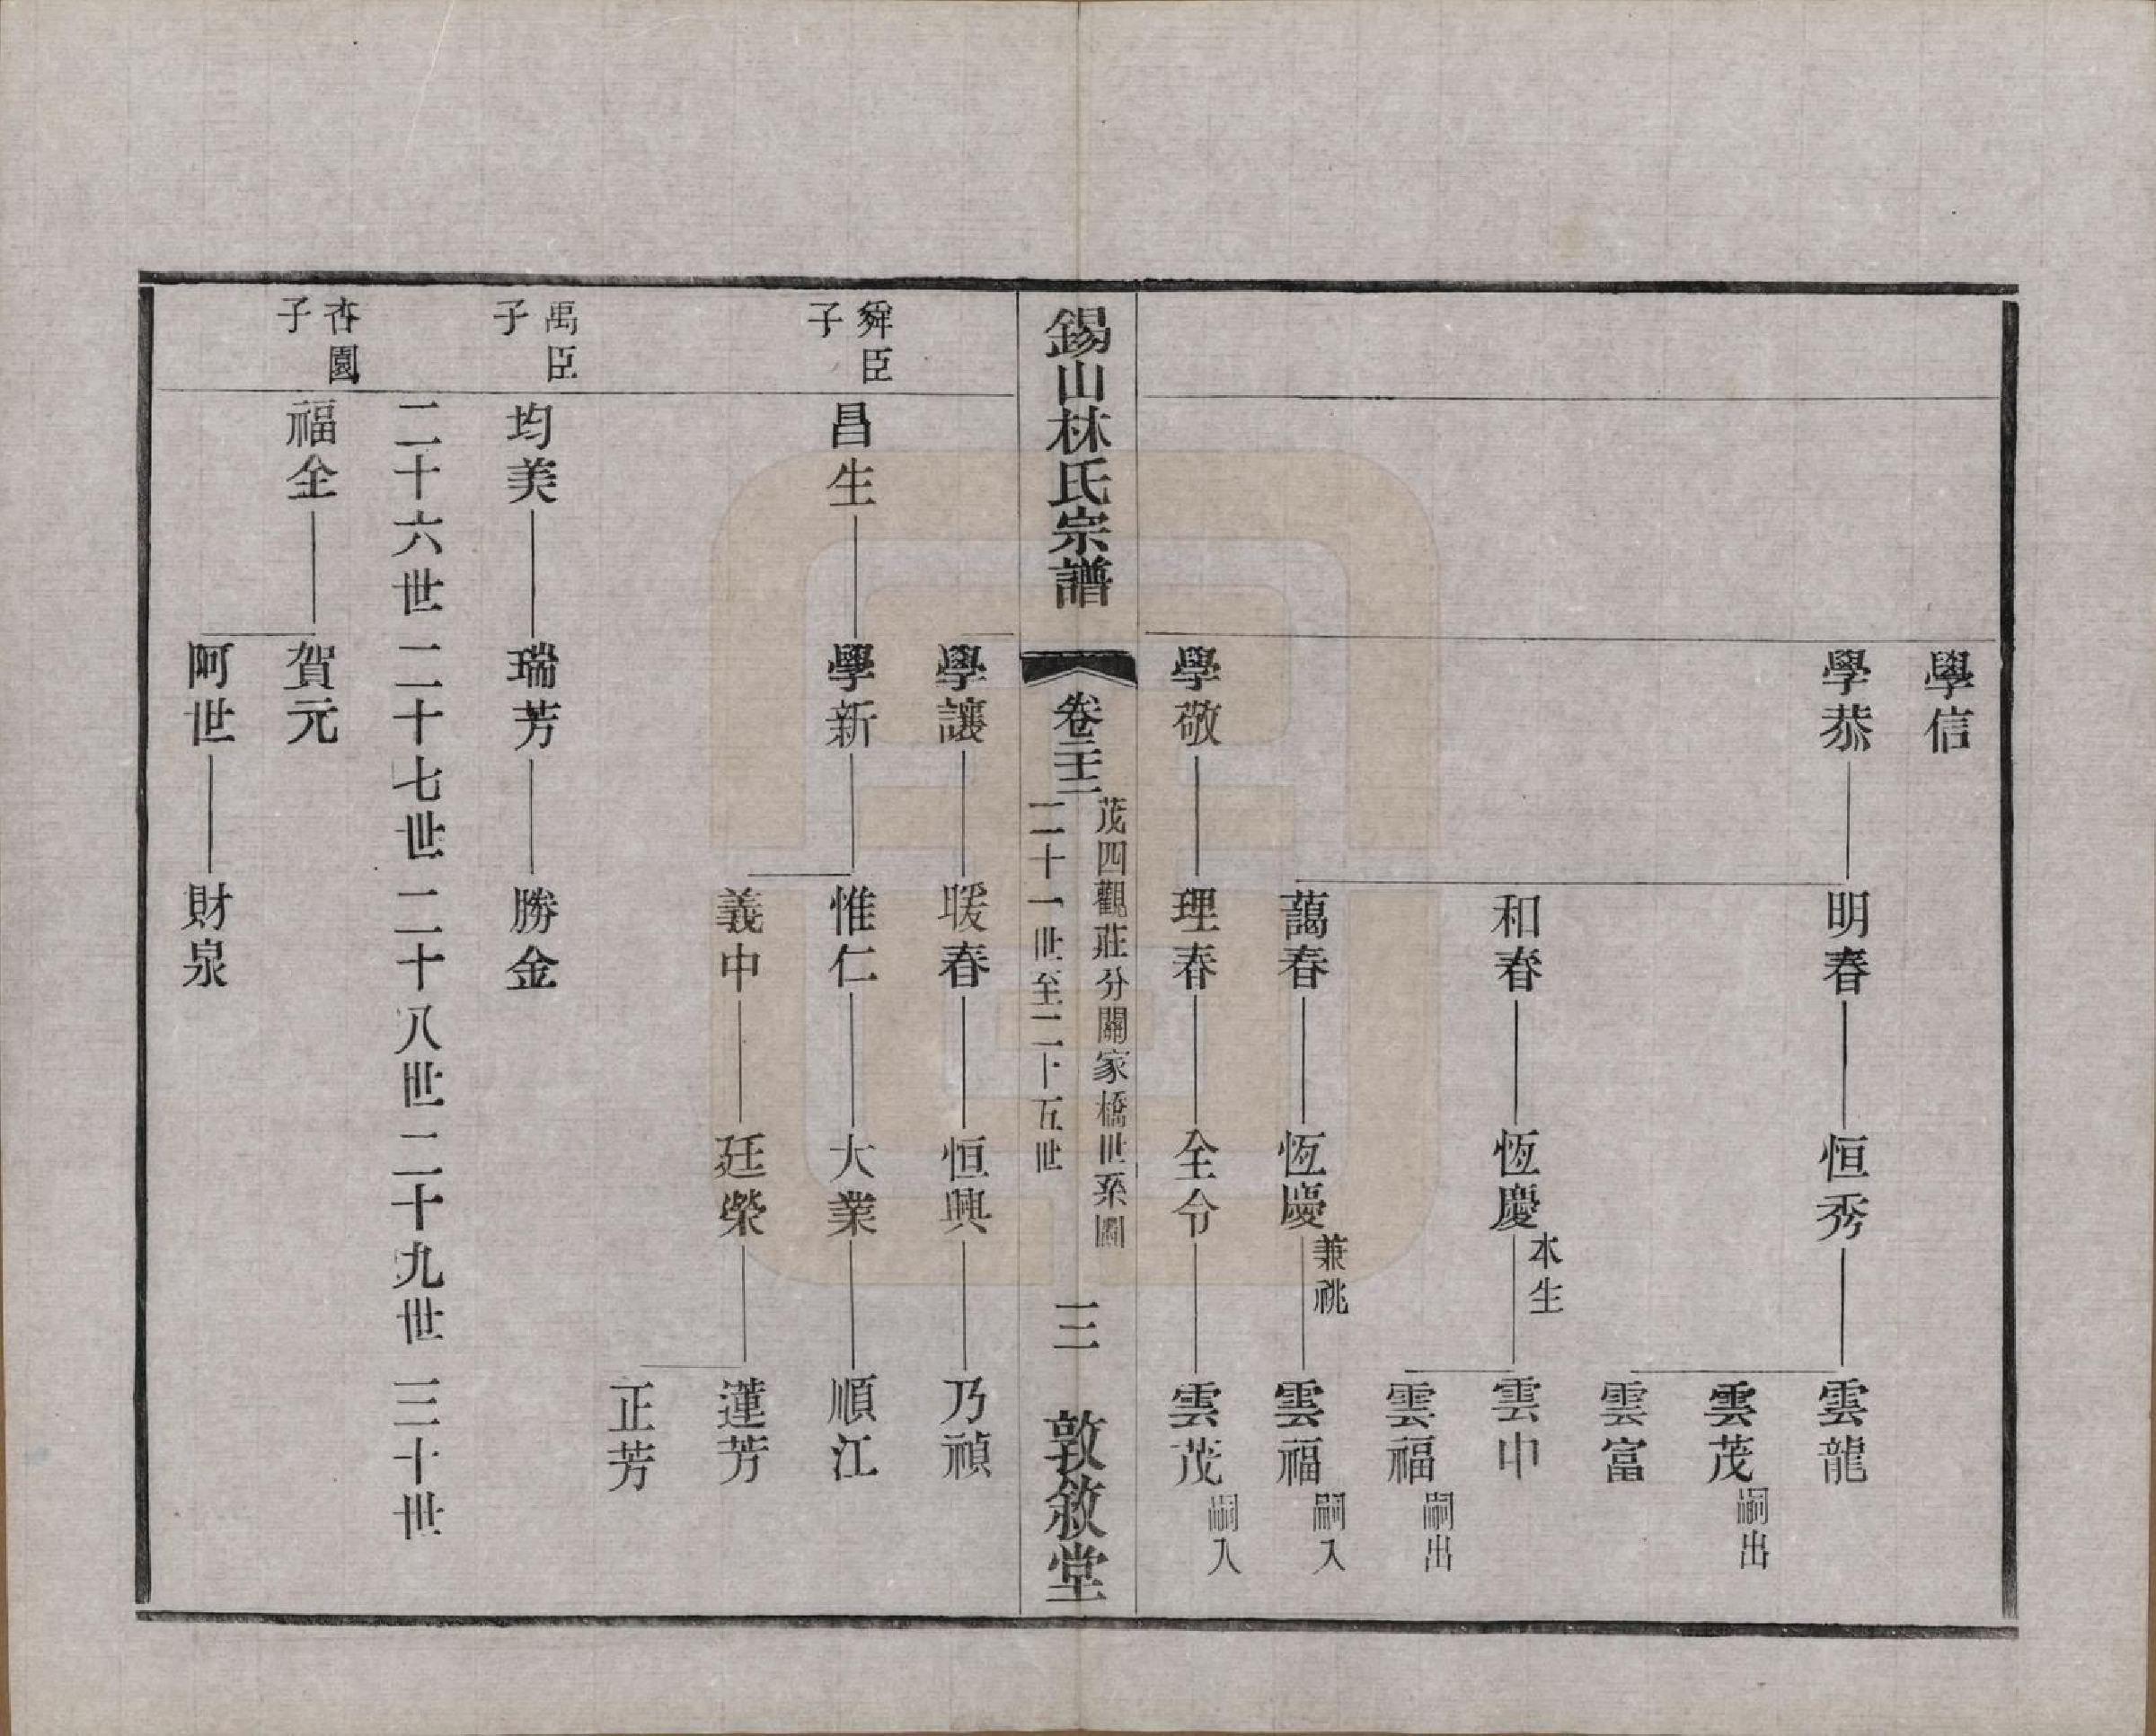 學信
學恭 明春 恒秀 雲龍
雲茂 嗣出
雲富
和春 恆慶 本生 雲中
雲福 嗣出
藹春 恆慶 兼祧 雲福 嗣入
學敬 理春 全令 雲茂 嗣入
錫山林氏宗譜 卷三十二 三 敦敘堂
茂四觀莊分關家橋世系圖
二十一世至二十五世
學讓 暖春 恒興 乃禎
舜臣子 昌生 學新 惟仁 大業 順江
義中 廷榮 蓮芳
正芳
禹臣子 均美 瑞芳 勝金
二十六世 二十七世 二十八世 二十九世 三十世
杏園子 福全 賀元
阿世 財泉